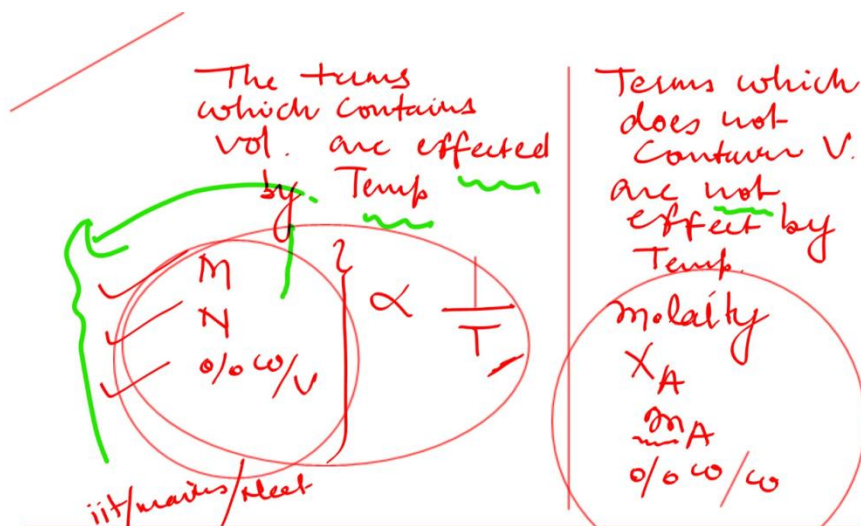 The terms
which contains
vol. are effected
by Temp
M
N
% w/v
∝ 1/T
iit/mains/Neet
Terms which
does not
contain V.
are not
effect by
Temp.
molality
X_A
m_A
% w/w